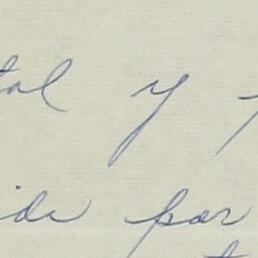 tal y
ide por